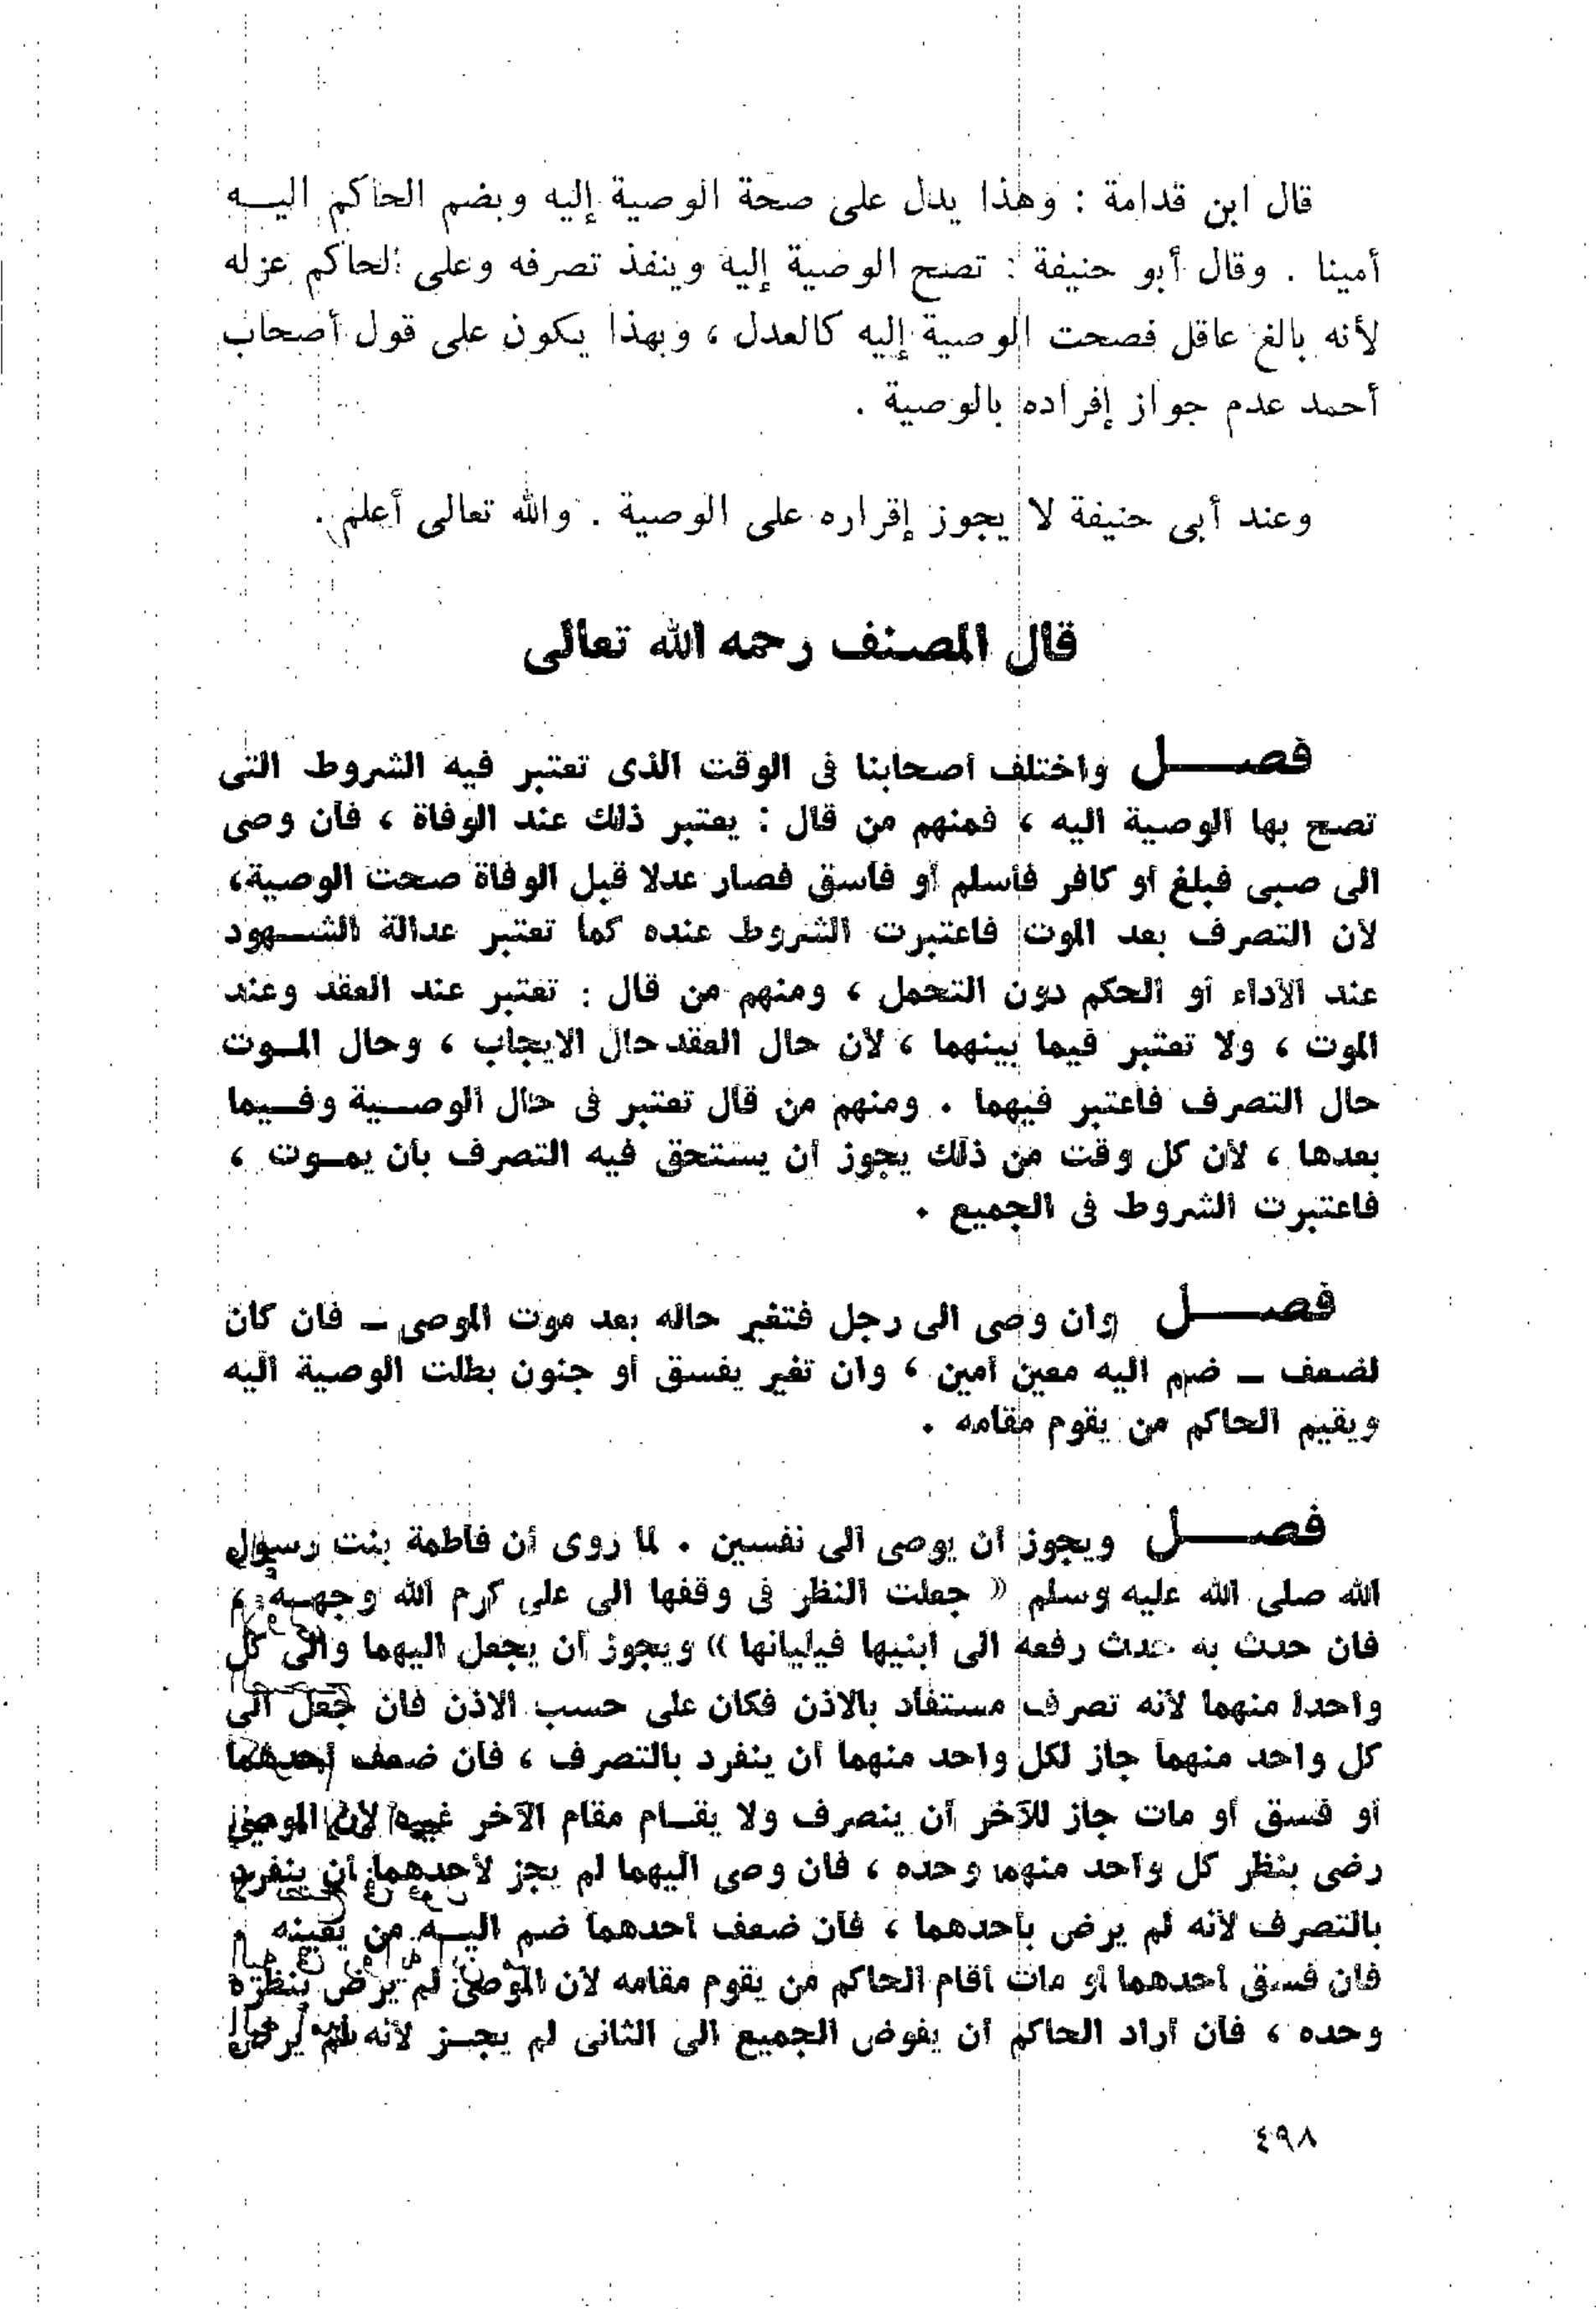 قال ابن قدامة : وهذا يدل على صحة الوصية إليه وبضم الحاكم اليـــه
أمينا . وقال أبو حنيفة : تصح الوصية إليه وينفذ تصرفه وعلى الحاكم عزله
لأنه بالغ عاقل فصحت الوصية إليه كالعدل ، وبهذا يكون على قول أصحاب
أحمد عدم جواز إفراده بالوصية .
وعند أبى حنيفة لا يجوز إقراره على الوصية . والله تعالى أعلم .
قال المصنف رحمه الله تعالى
فصـــل واختلف أصحابنا فى الوقت الذى تعتبر فيه الشروط التى
تصح بها الوصية اليه ، فمنهم من قال : يعتبر ذلك عند الوفاة ، فان وصى
الى صبى فبلغ أو كافر فأسلم أو فاسق فصار عدلا قبل الوفاة صحت الوصية،
لأن التصرف بعد الموت فاعتبرت الشروط عنده كما تعتبر عدالة الشـــهود
عند الأداء أو الحكم دون التحمل ، ومنهم من قال : تعتبر عند العقد وعند
الموت ، ولا تعتبر فيما بينهما ، لأن حال العقد حال الايجاب ، وحال المـــوت
حال التصرف فاعتبر فيهما . ومنهم من قال تعتبر فى حال الوصـــية وفـــيما
بعدها ، لأن كل وقت من ذلك يجوز أن يستحق فيه التصرف بأن يمـــوت ،
فاعتبرت الشروط فى الجميع .
فصـــل وان وصى الى رجل فتغير حاله بعد موت الموصى ـ فان كان
لضعف ـ ضم اليه معين أمين ، وان تغير يفسق أو جنون بطلت الوصية اليه
ويقيم الحاكم من يقوم مقامه .
فصـــل ويجوز أن يوصى الى نفسين . لما روى أن فاطمة بنت رسول
الله صلى الله عليه وسلم « جعلت النظر فى وقفها الى على كرم الله وجهـــه ،
فان حدث به حدث رفعه الى ابنيها فيليانها » ويجوز أن يجعل اليهما والى كل
واحدا منهما لأنه تصرف مستفاد بالاذن فكان على حسب الاذن فان جعل الى
كل واحد منهما جاز لكل واحد منهما أن ينفرد بالتصرف ، فان ضعف أحدهما
أو فسق أو مات جاز للآخر أن ينصرف ولا يقـــام مقام الآخر غيره لأن الموصى
رضى بنظر كل واحد منهما وحده ، فان وصى اليهما لم يجز لأحدهما أن ينفرد
بالتصرف لأنه لم يرض بأحدهما ، فان ضعف أحدهما ضم اليـــه من يعينه .
فان فسق أحدهما أو مات أقام الحاكم من يقوم مقامه لأن الموصى لم يرض بنظره
وحده ، فان أراد الحاكم أن يفوض الجميع الى الثانى لم يجـــز لأنه لم يرض
٤٩٨